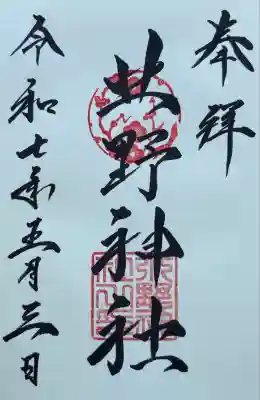 奉拜
北野神社
令和七年五月三日